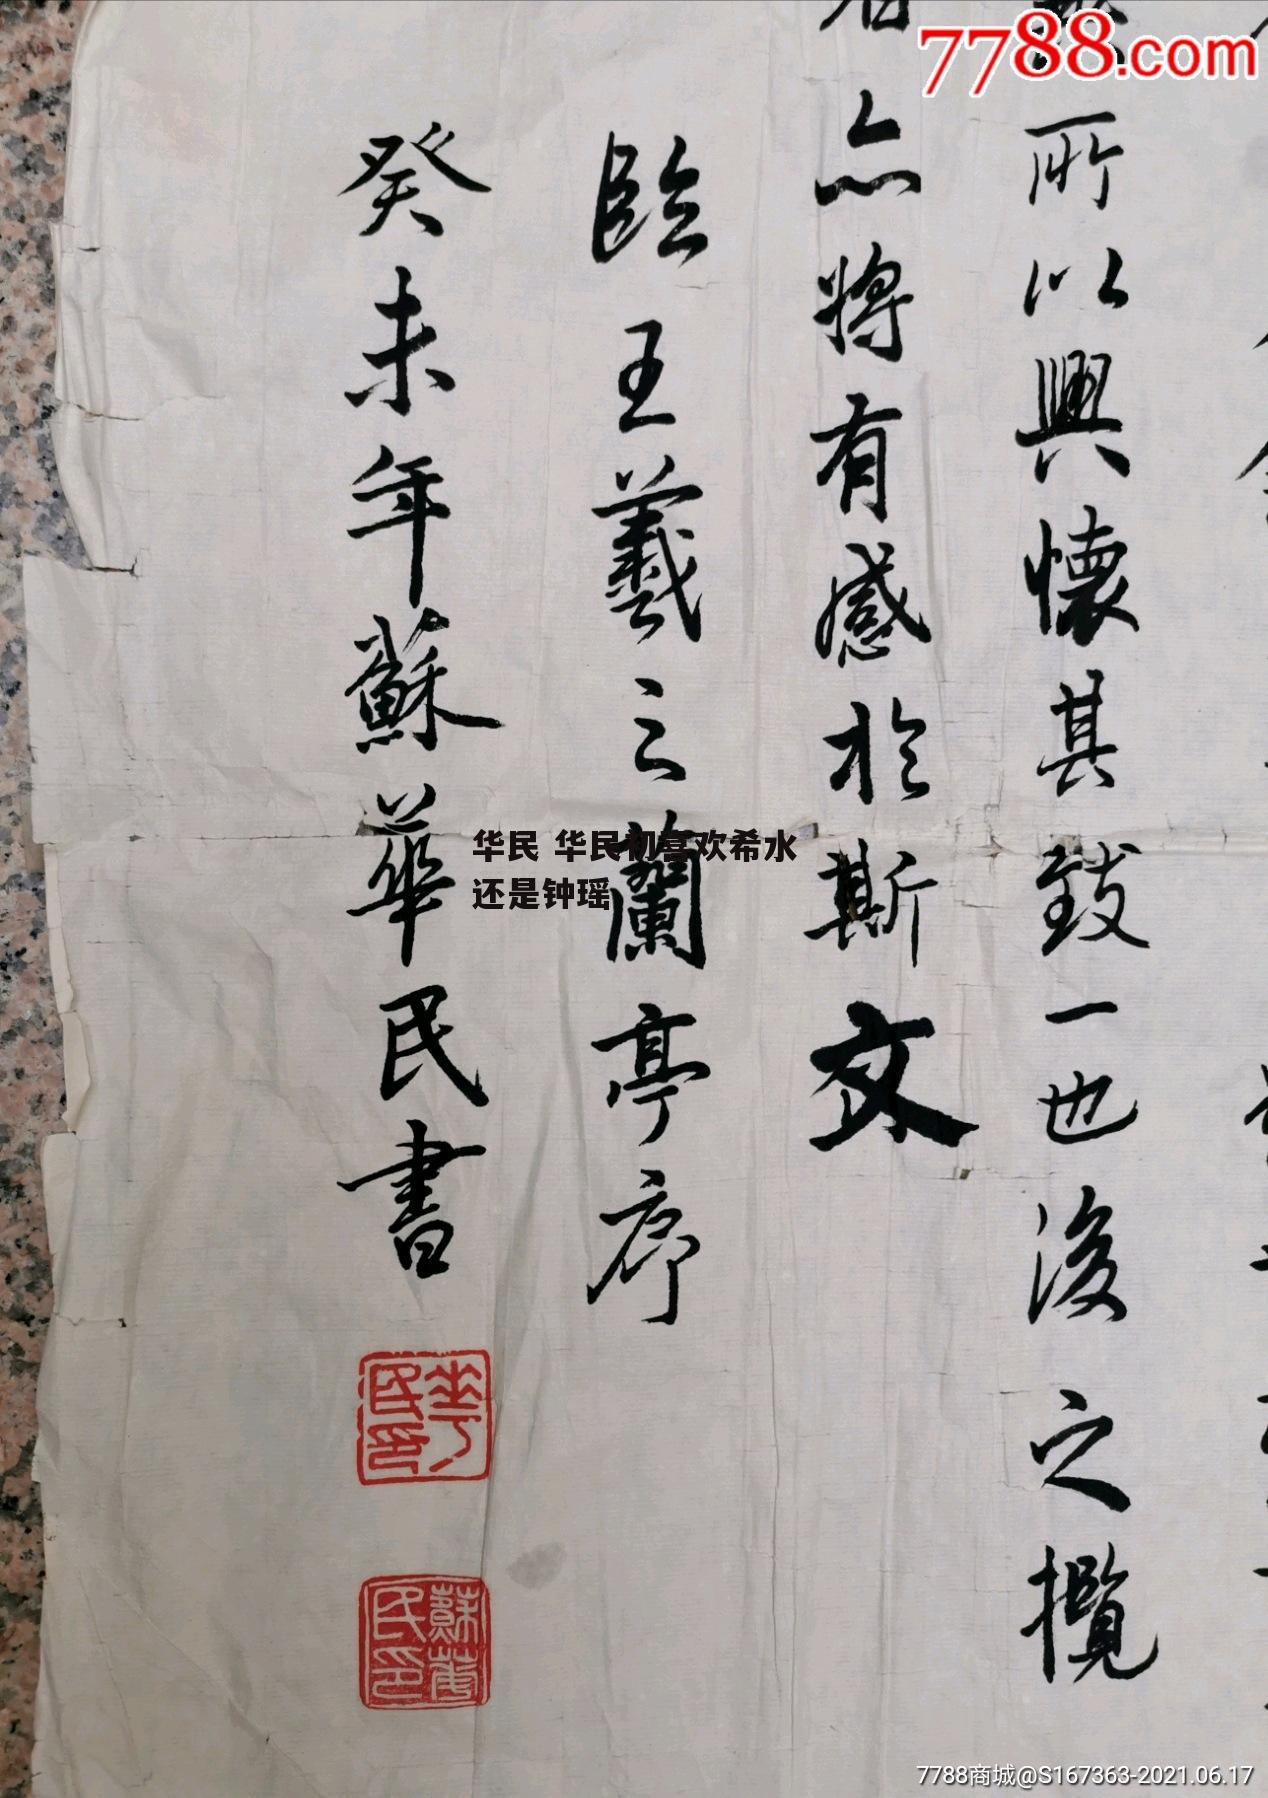 7788.com
所以興懷其致一也後之攬
亦將有感於斯文
臨王羲之蘭亭序
癸未年蘇華民書
華民印
蘇華民印
华民 华民初喜欢希水
还是钟瑶
7788商城@S167363-2021.06.17